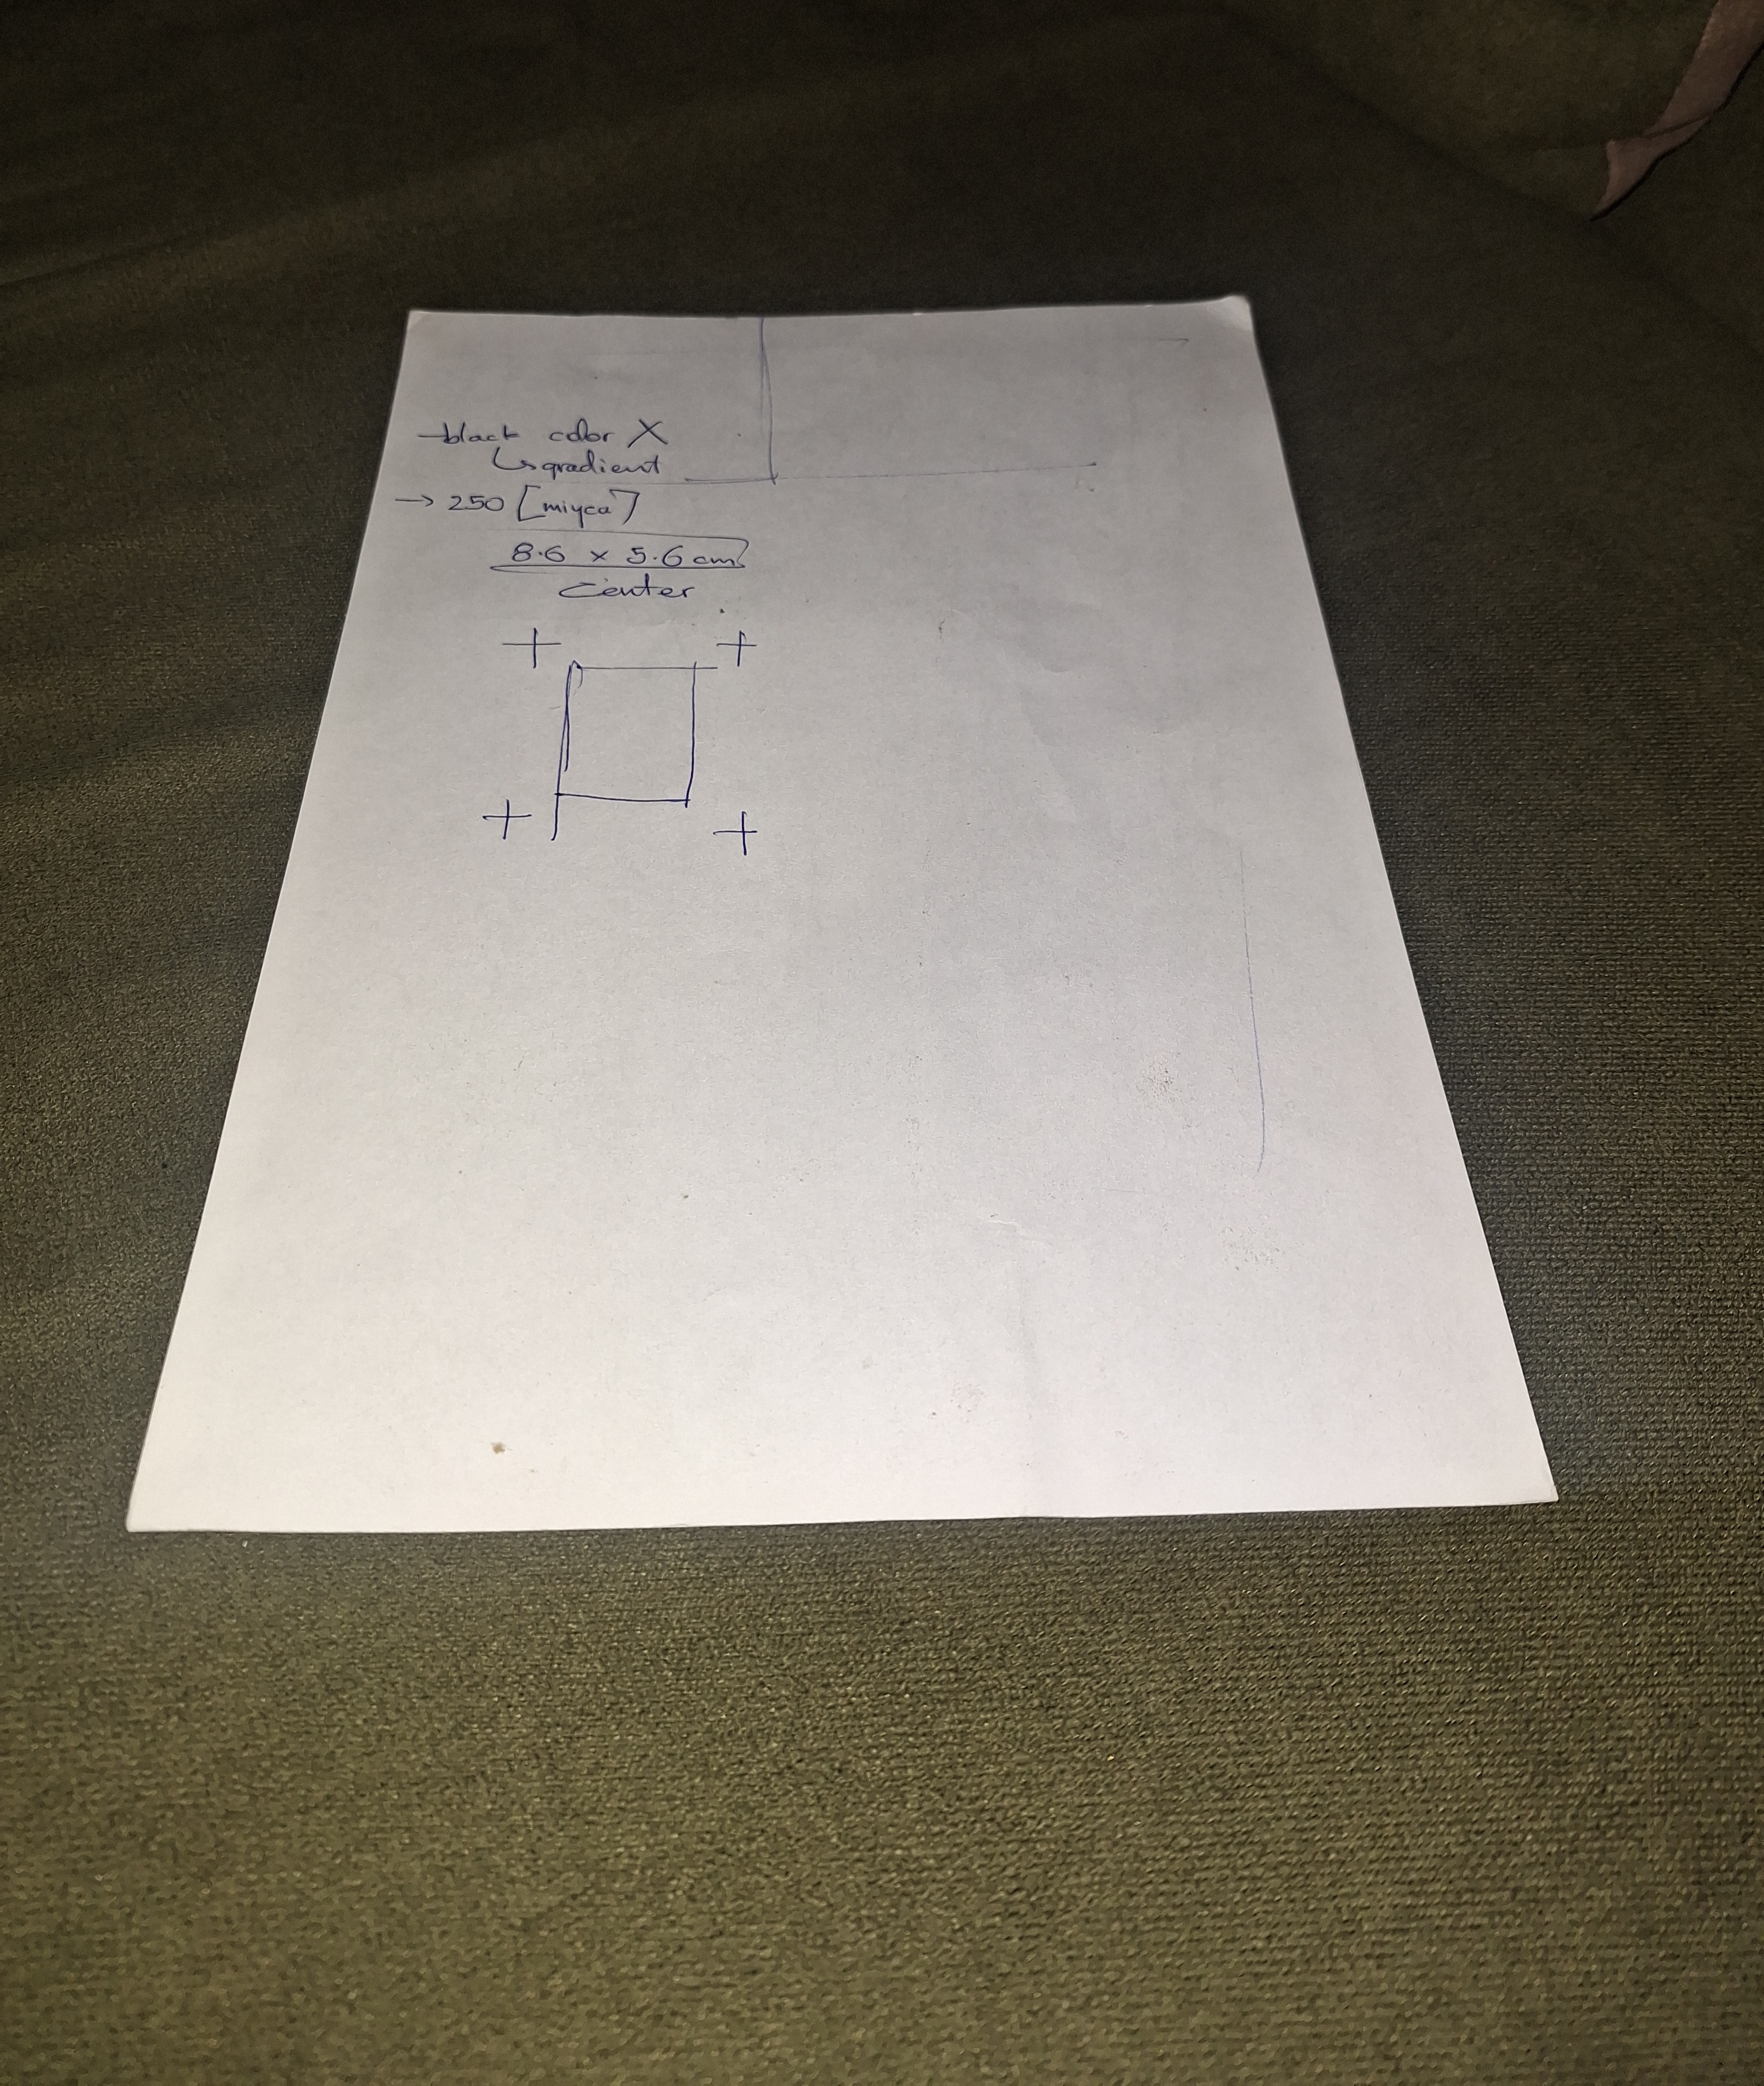 -black color X
↳ gradient
→ 250 [miyca]
8.6 x 5.6 cm
Center